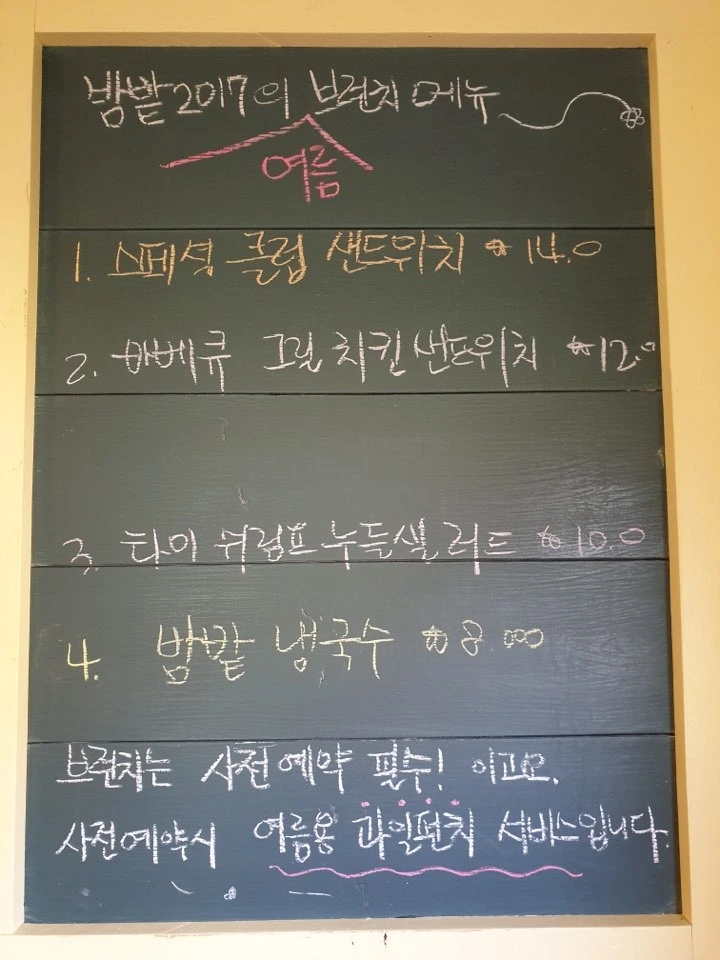 밤밭2017의 브런치 메뉴
여름
1. 스페셜 클럽 샌드위치 14.0
2. 바베큐 그릴 치킨 샌드위치 12.0
3. 타이 쉬림프 누들샐러드 10.0
4. 밤밭 냉국수 8.000
브런치는 사전예약 필수! 이고요.
사전예약시 여름용 과일펀치 서비스입니다.